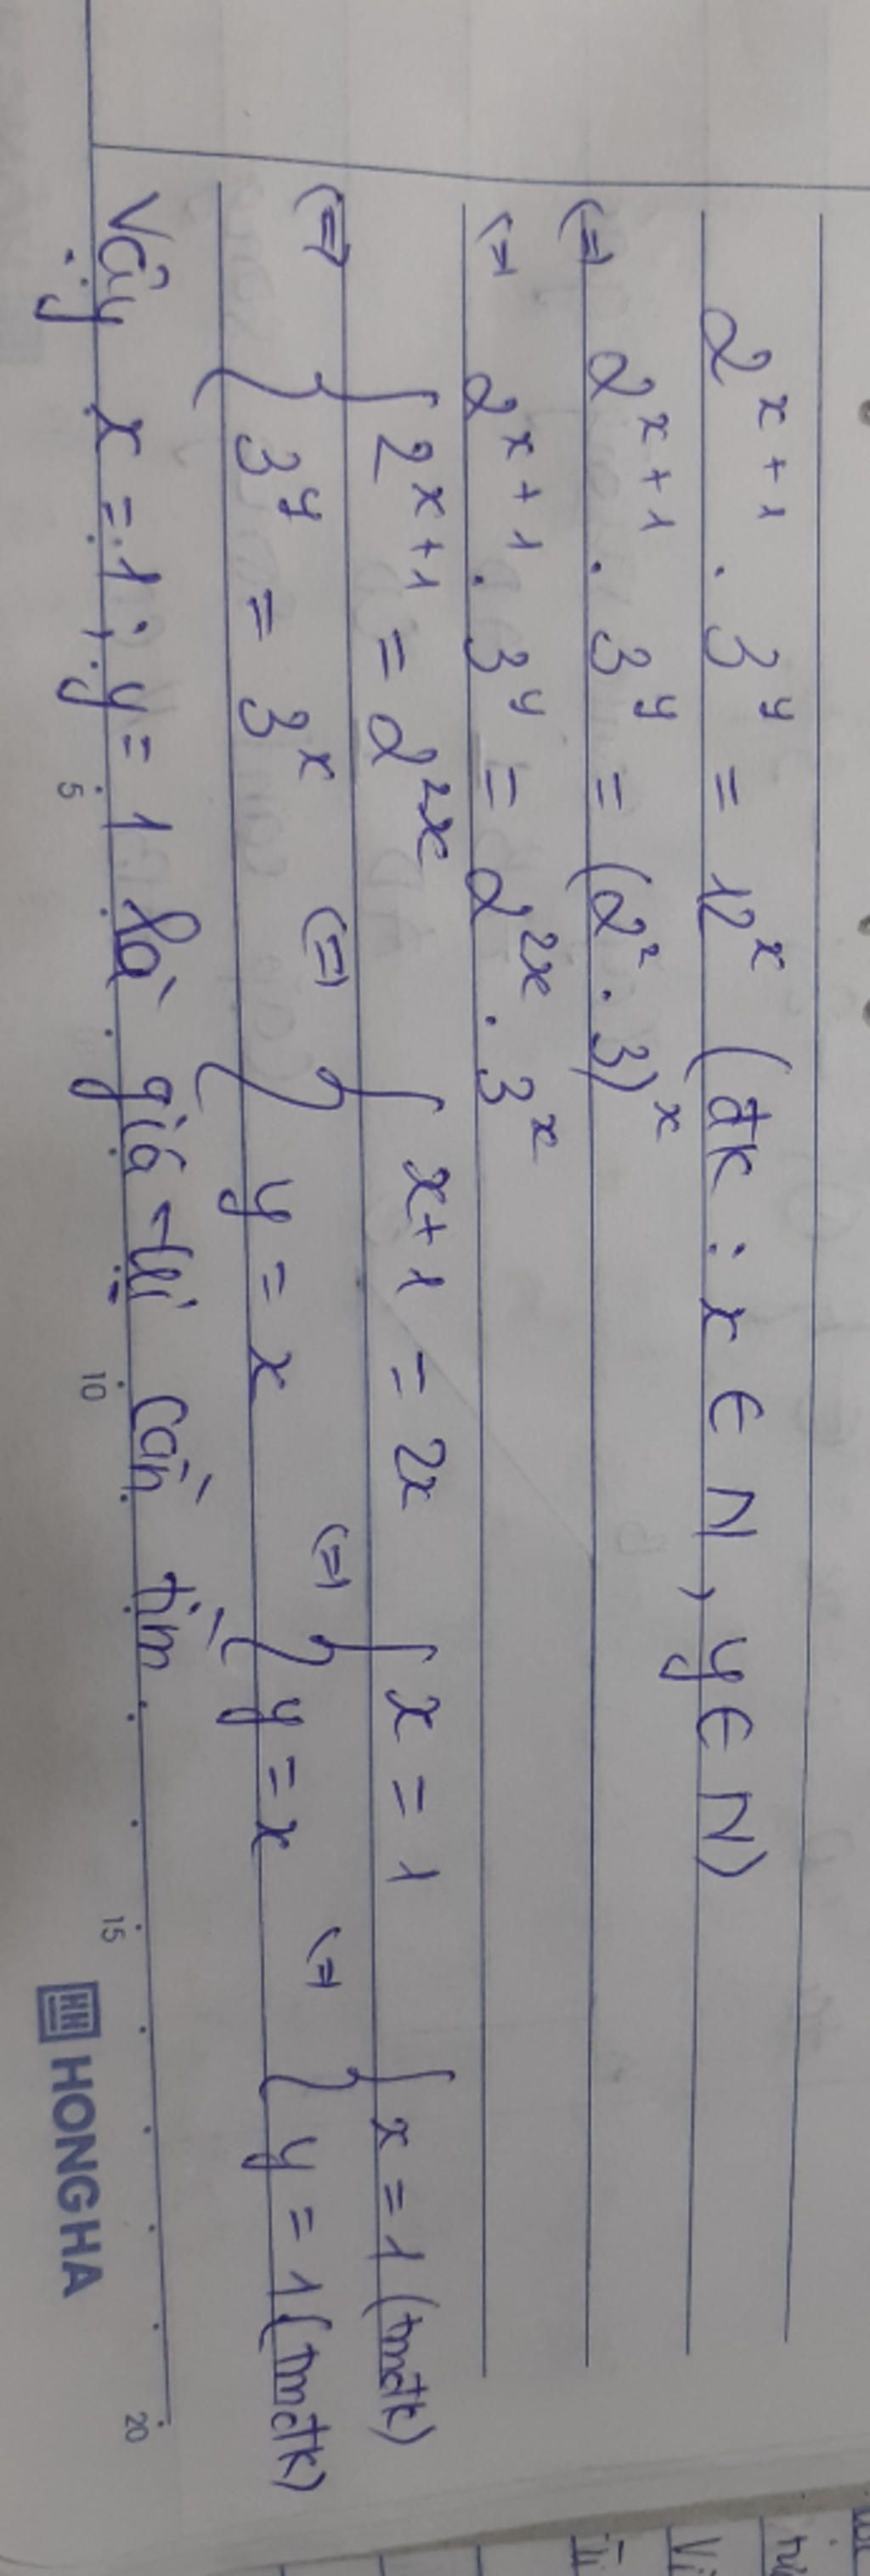 2^{x+1} . 3^y = 12^x (đk : x ∈ N, y ∈ N)
(=) 2^{x+1} . 3^y = (2² . 3)^x
(=) 2^{x+1} . 3^y = 2^{2x} . 3^x
(=) { 2^{x+1} = 2^{2x} ; 3^y = 3^x (=) { x+1 = 2x ; y = x (=) { x = 1 ; y = x (=) { x = 1 (tmđk) ; y = 1 (tmđk)
Vậy x = 1 ; y = 1 là giá trị cần tìm
5 10 15 20
HONG HA